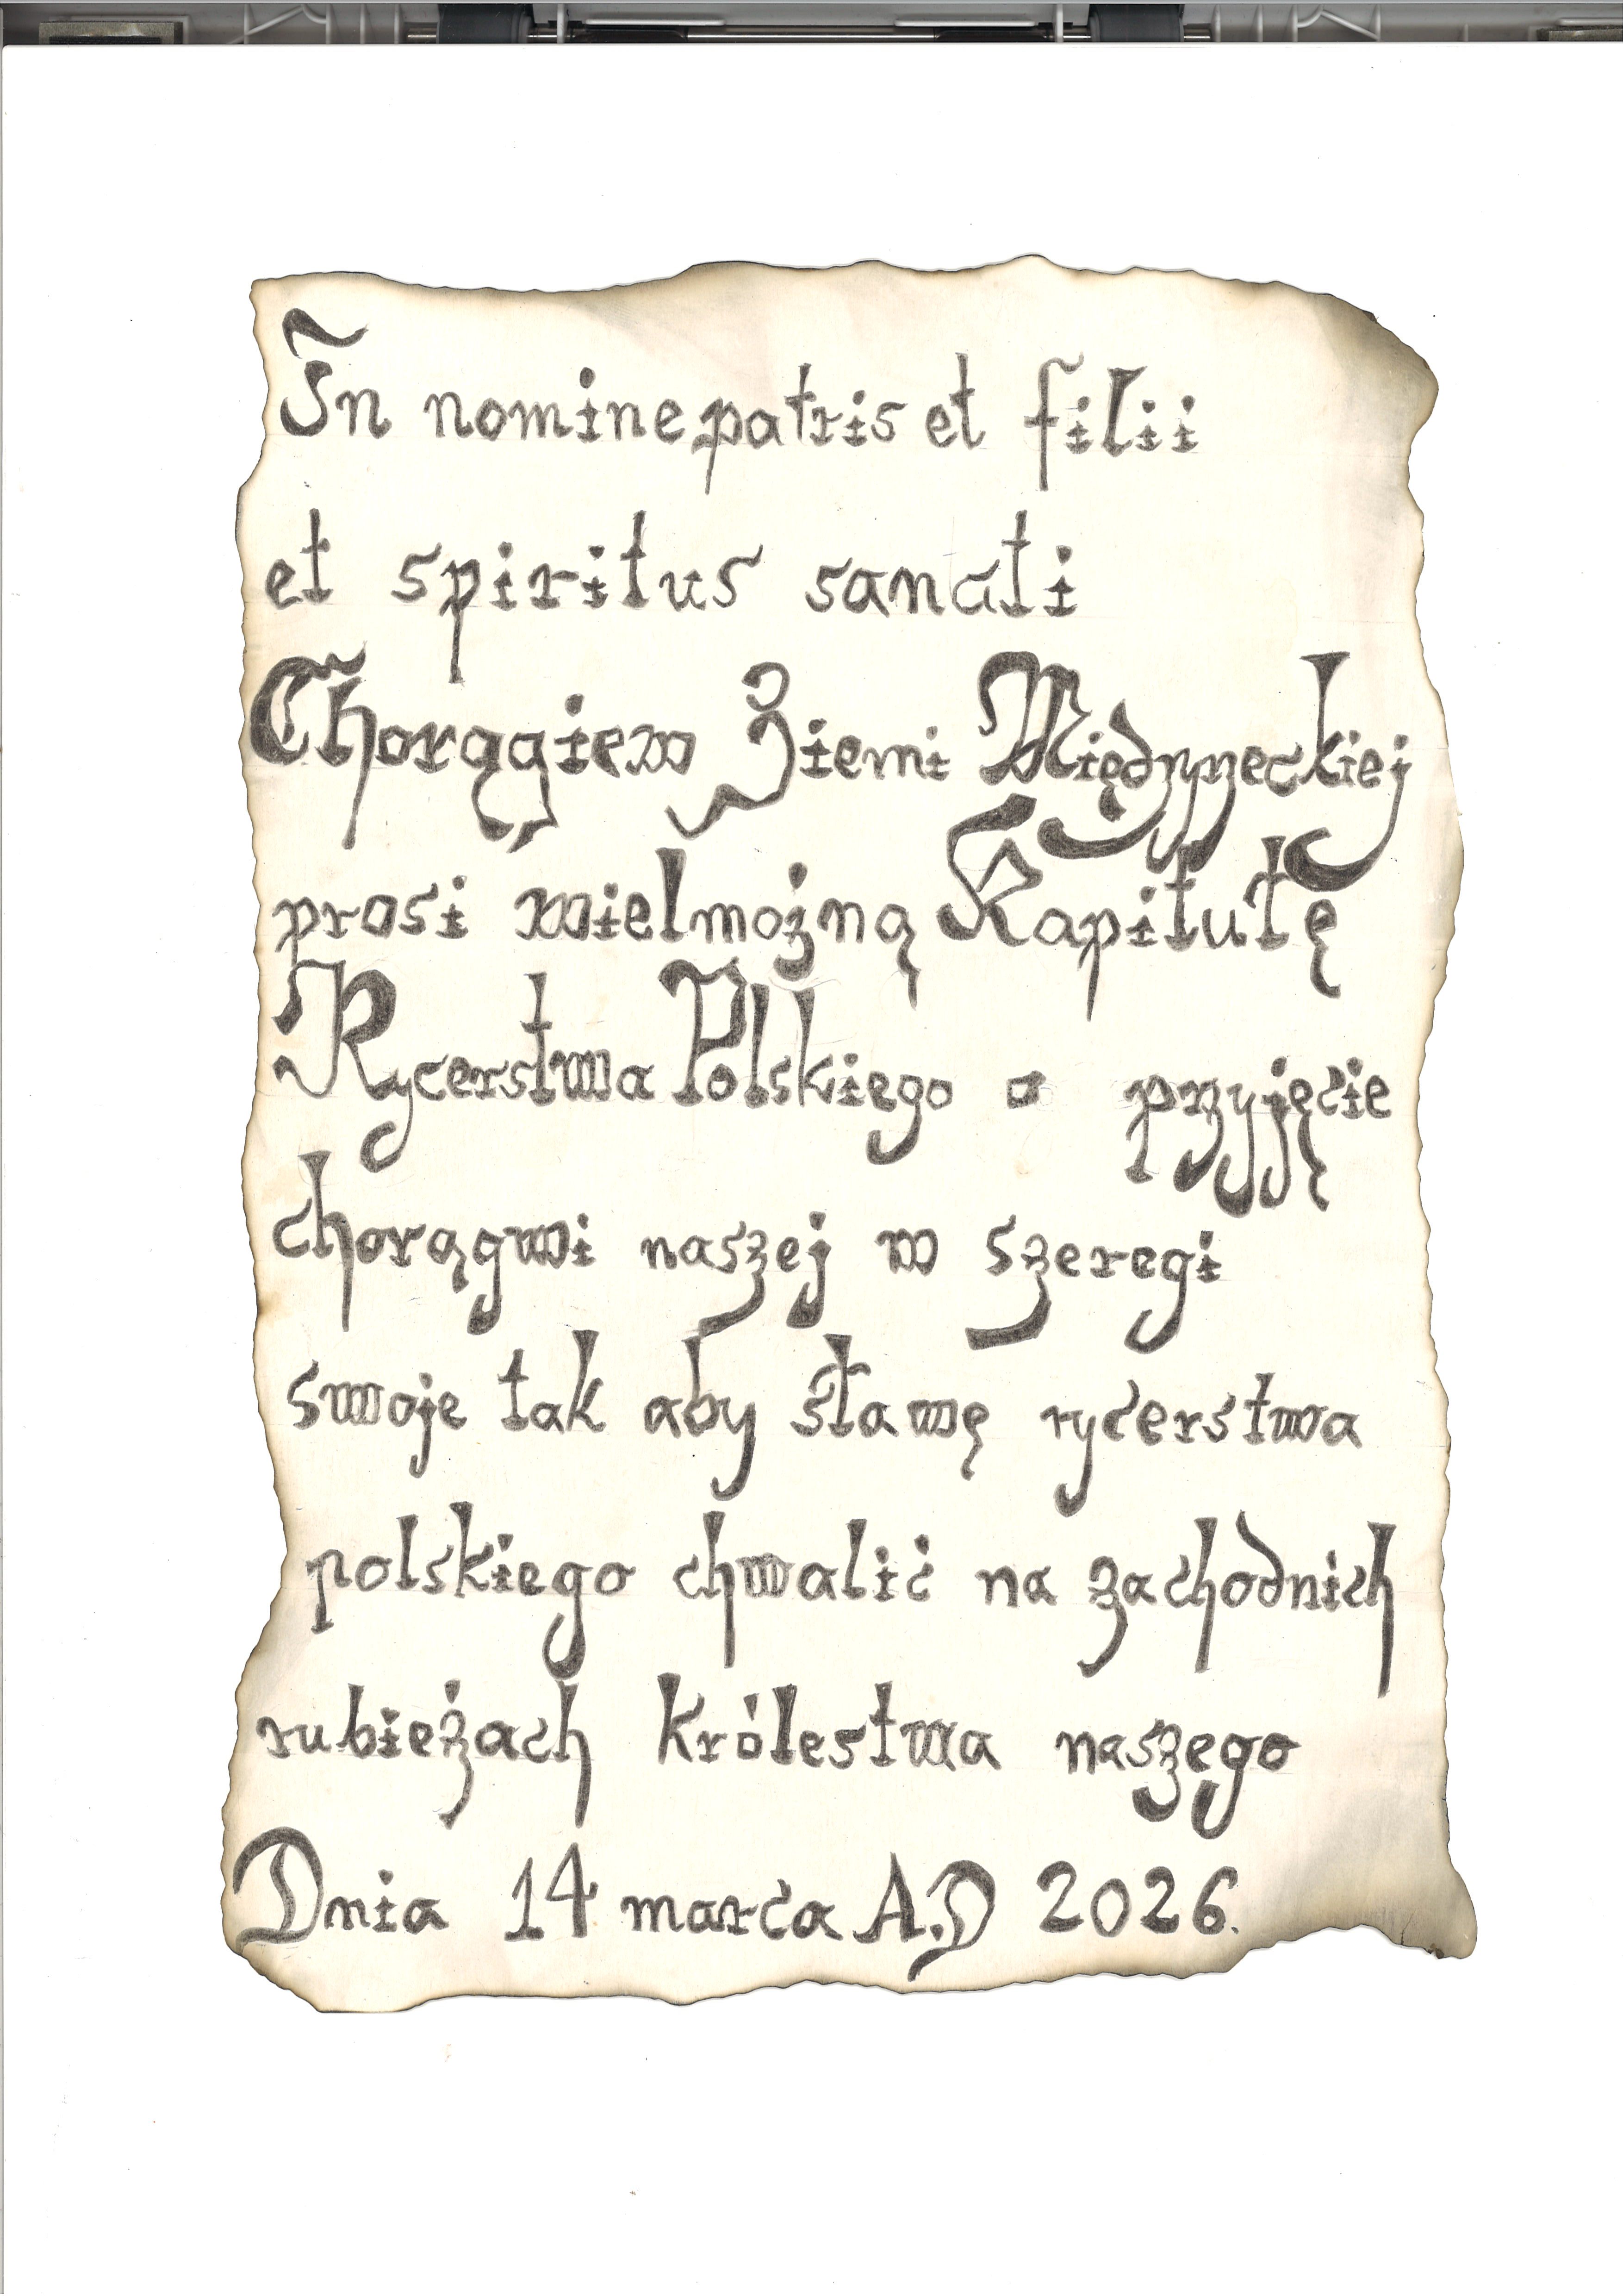 In nomine patris et filii
et spiritus sancti
Chorągiew Ziemi Międzyrzeckiej
prosi wielmożną Kapitułę
Rycerstwa Polskiego o przyjęcie
chorągwi naszej w szeregi
swoje tak aby sławę rycerstwa
polskiego chwalić na zachodnich
rubieżach Królestwa naszego
Dnia 14 marca A.D 2026.